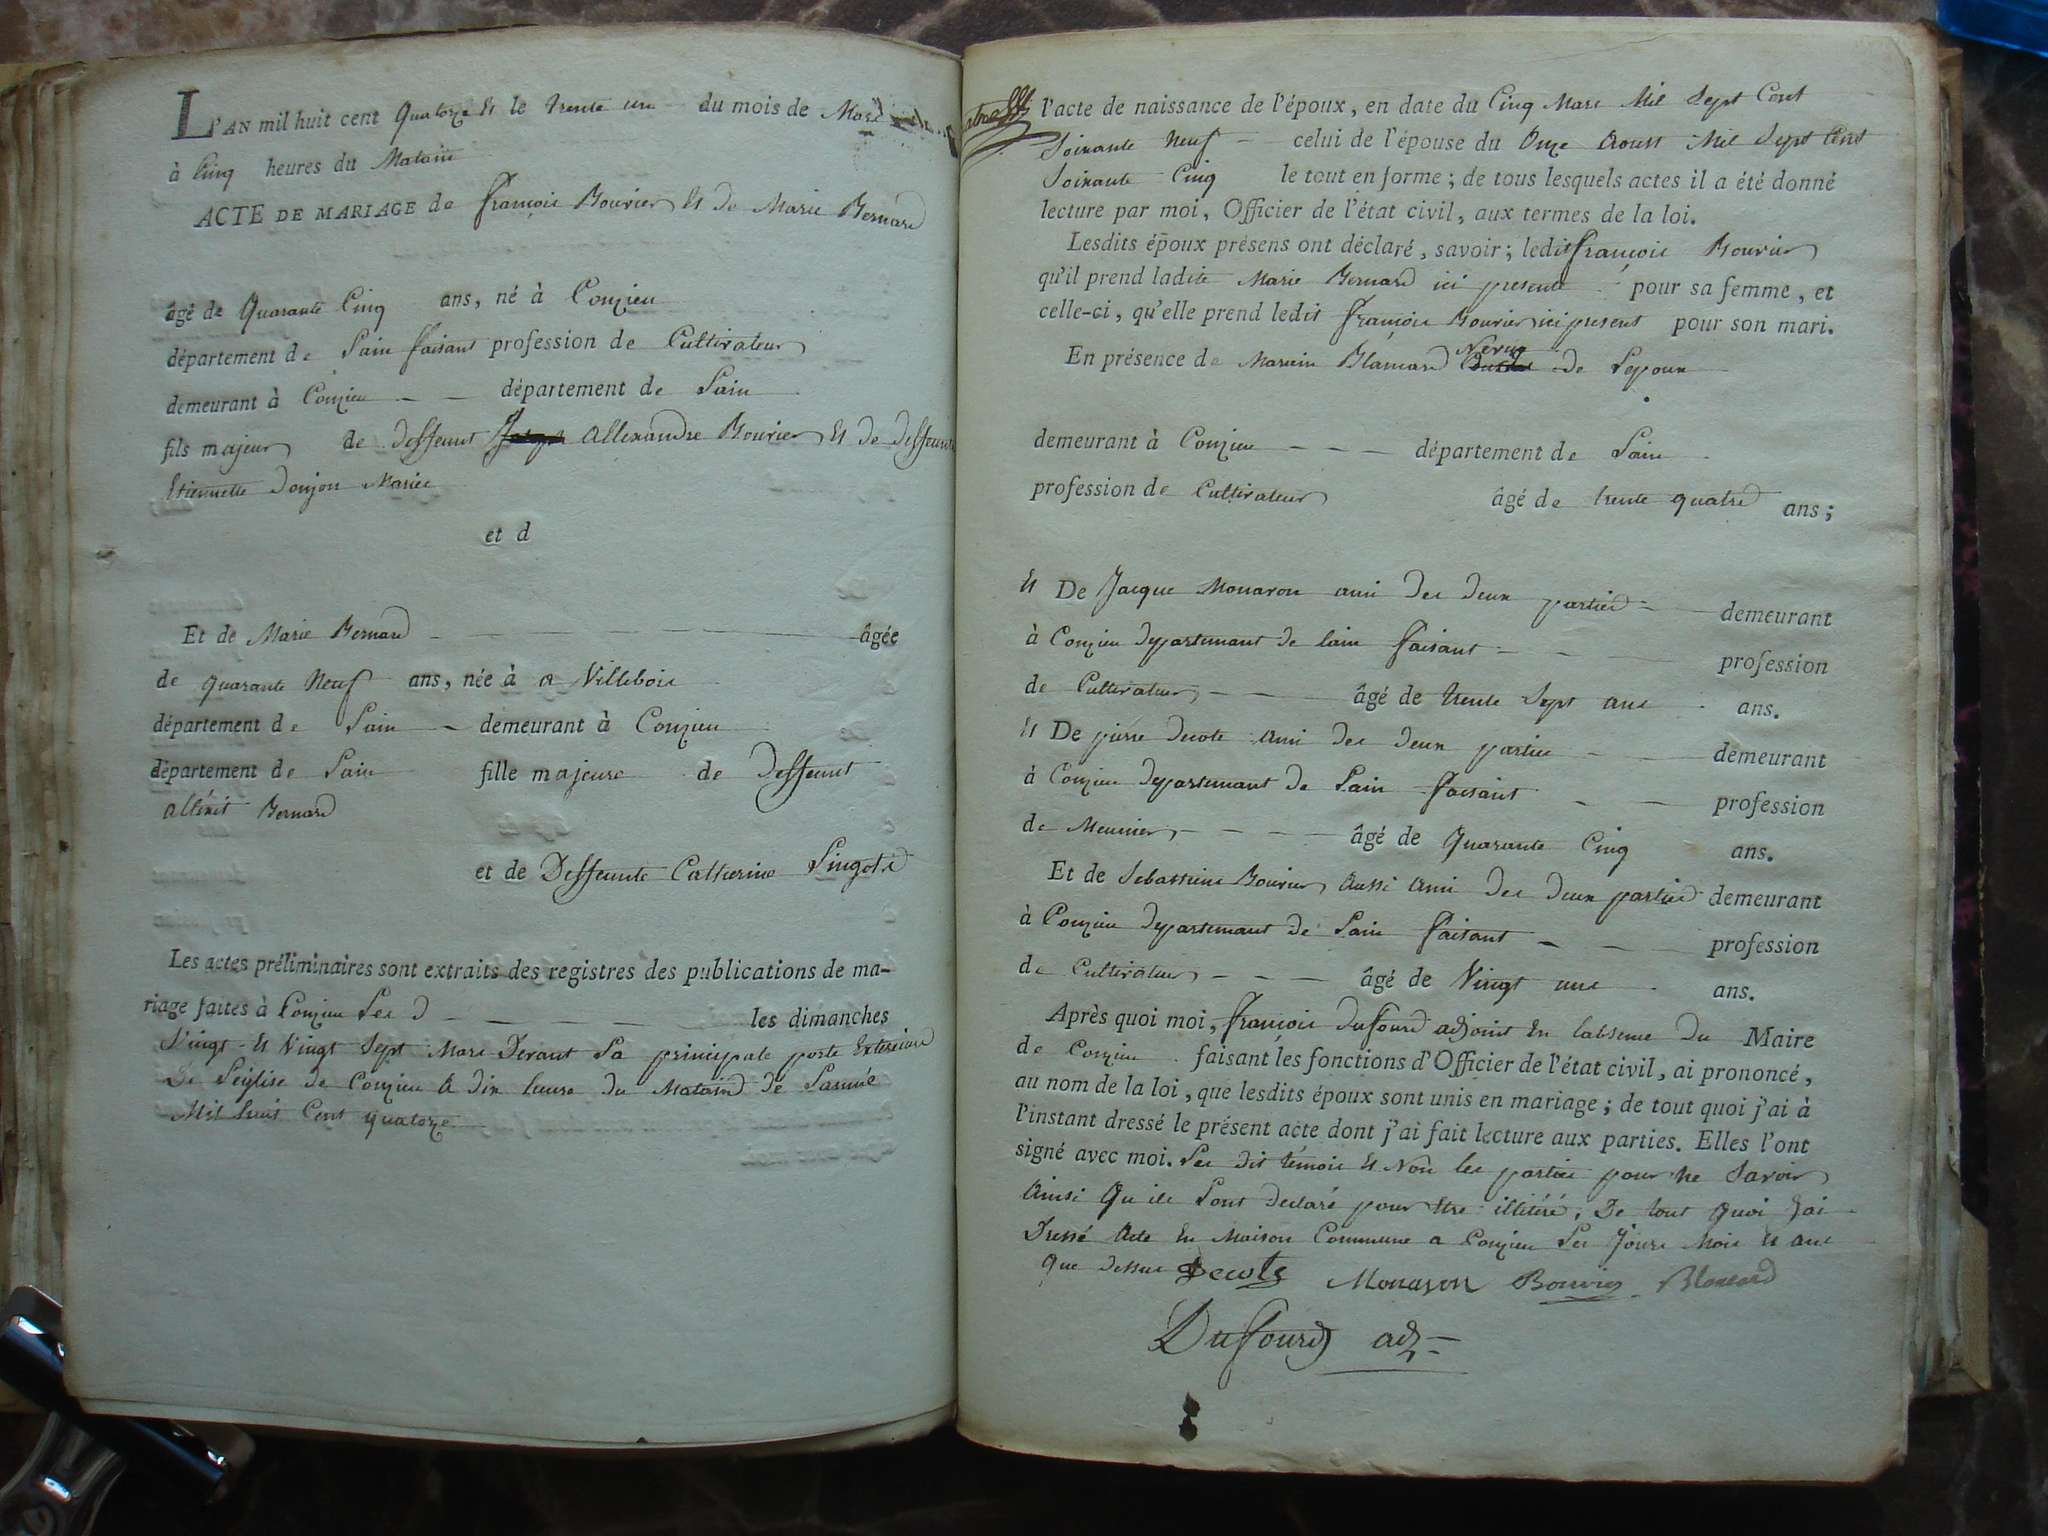 L'AN mil huit cent Quatorze Et le trente un du mois de Mars
à Cinq heures du Matain
ACTE DE MARIAGE de françois Bouvier Et de Marie Bernard
âgé de Quarante Cinq ans, né à Conzieu
département de Lain faisant profession de Cultivateur
demeurant à Conzieu département de Lain
fils majeur de deffeunt Allexandre Bouvier Et de deffeunte
Etiennette Donjon Mariée
et d
Et de Marie Bernard âgée
de quarante Neuf ans, née à a Villebois
département de Lain demeurant à Conzieu
département de Lain fille majeure de deffeunt
Bernard
et de Deffeunte Catherine
Les actes préliminaires sont extraits des registres des publications de ma-
riage faites à Conzieu Les d les dimanches
Vingt Et Vingt Sept Mars Devant La principale porte Exterieure
De Leglise de Conzieu a dix heure du Mataind de Lannée
Mil huit Cent quatorze
l'acte de naissance de l'époux, en date du Cinq Mars Mil Sept Cent
Soixante Neuf celui de l'épouse du Onze Aoust Mil Sept Cent
Soixante Cinq le tout en forme ; de tous lesquels actes il a été donné
lecture par moi, Officier de l'état civil, aux termes de la loi.
Lesdits époux présens ont déclaré, savoir ; ledit françois Bouvier
qu'il prend ladite Marie Bernard ici presente pour sa femme, et
celle-ci, qu'elle prend ledit françois Bouvier ici present pour son mari.
En présence de Blancard Neveu de Lepoux
demeurant à Conzieu département de Lain
profession de Cultivateur âgé de trente quatre ans ;
Et De Jacque Monavon ami des deux parties demeurant
à Conzieu departemant de lain faisant profession
de Cultivateur âgé de trente Sept ans ans.
Et De pierre decote Ami des deux parties demeurant
à Conzieu departemant de Lain faisant profession
de Meunier âgé de Quarante Cinq ans.
Et de Sebastien Bouvier Aussi Ami des deux parties demeurant
à Conzieu departemant de Lain faisant profession
de Cultivateur âgé de Vingt ans.
Après quoi moi, françois duffourd adjoint En labsence du Maire
de Conzieu faisant les fonctions d'Officier de l'état civil, ai prononcé,
au nom de la loi, que lesdits époux sont unis en mariage ; de tout quoi j'ai à
l'instant dressé le présent acte dont j'ai fait lecture aux parties. Elles l'ont
signé avec moi. Les dit témois Et Non les parties pour ne Savoir
Ainsi Qu ils Lont declaré pour Etre illitéré, De tout Quoi Jai
Dressé Acte En Maison Commune a Conzieu Les Jours Mois Et ans
Que dessus Decote Monavon Bouvier Blancard
Duffourd adj